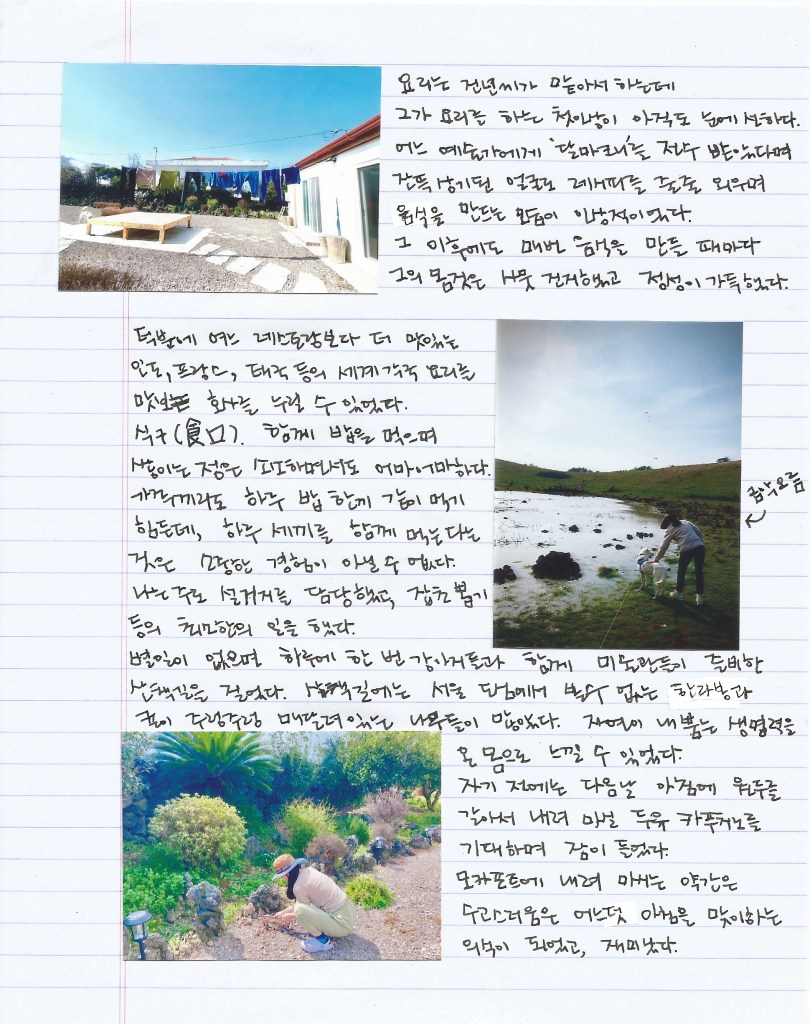 요리는 건년씨가 맡아서 하는데
그가 요리를 하는 첫인상이 아직도 눈에 선하다.
어느 예술가에게 '달마크니'를 전수 받았다며
잔뜩 상기된 얼굴로 레시피를 줄줄 외우며
음식을 만드는 모습이 인상적이었다.
그 이후에도 매번 음식을 만들 때마다
그의 몸짓은 사뭇 진지했고 정성이 가득했다.
덕분에 여느 레스토랑보다 더 맛있는
인도, 프랑스, 태국 등의 세계 각국 요리를
맛보는 호사를 누릴 수 있었다.
식구(食口). 함께 밥을 먹으며
쌓이는 정은 소소하면서도 어마어마하다.
가족끼리도 하루 밥 한끼 같이 먹기
힘든데, 하루 세끼를 함께 먹는다는
것은 소중한 경험이 아닐 수 없다.
나는 주로 설거지를 담당했고, 잡초 뽑기
등의 최소한의 일을 했다.
별일이 없으면 하루에 한 번 강아지들과 함께 미술관들이 준비한
산책길을 걸었다. 산책길에는 서울 도심에서 볼수 없는 한라봉과
귤이 주렁주렁 매달려있는 나무들이 많았다. 자연이 내뿜는 생명력을
온 몸으로 느낄 수 있었다.
자기 전에는 다음날 아침에 원두를
갈아서 내려 마실 두유 카푸치노를
기대하며 잠이 들었다.
모카포트에 내려 마시는 약간은
수고스러움은 어느덧 아침을 맞이하는
의식이 되었고, 재미났다.
금악오름